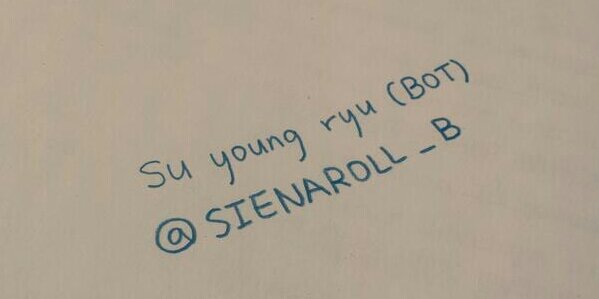 Su young ryu (BOT)
@SIENAROLL_B